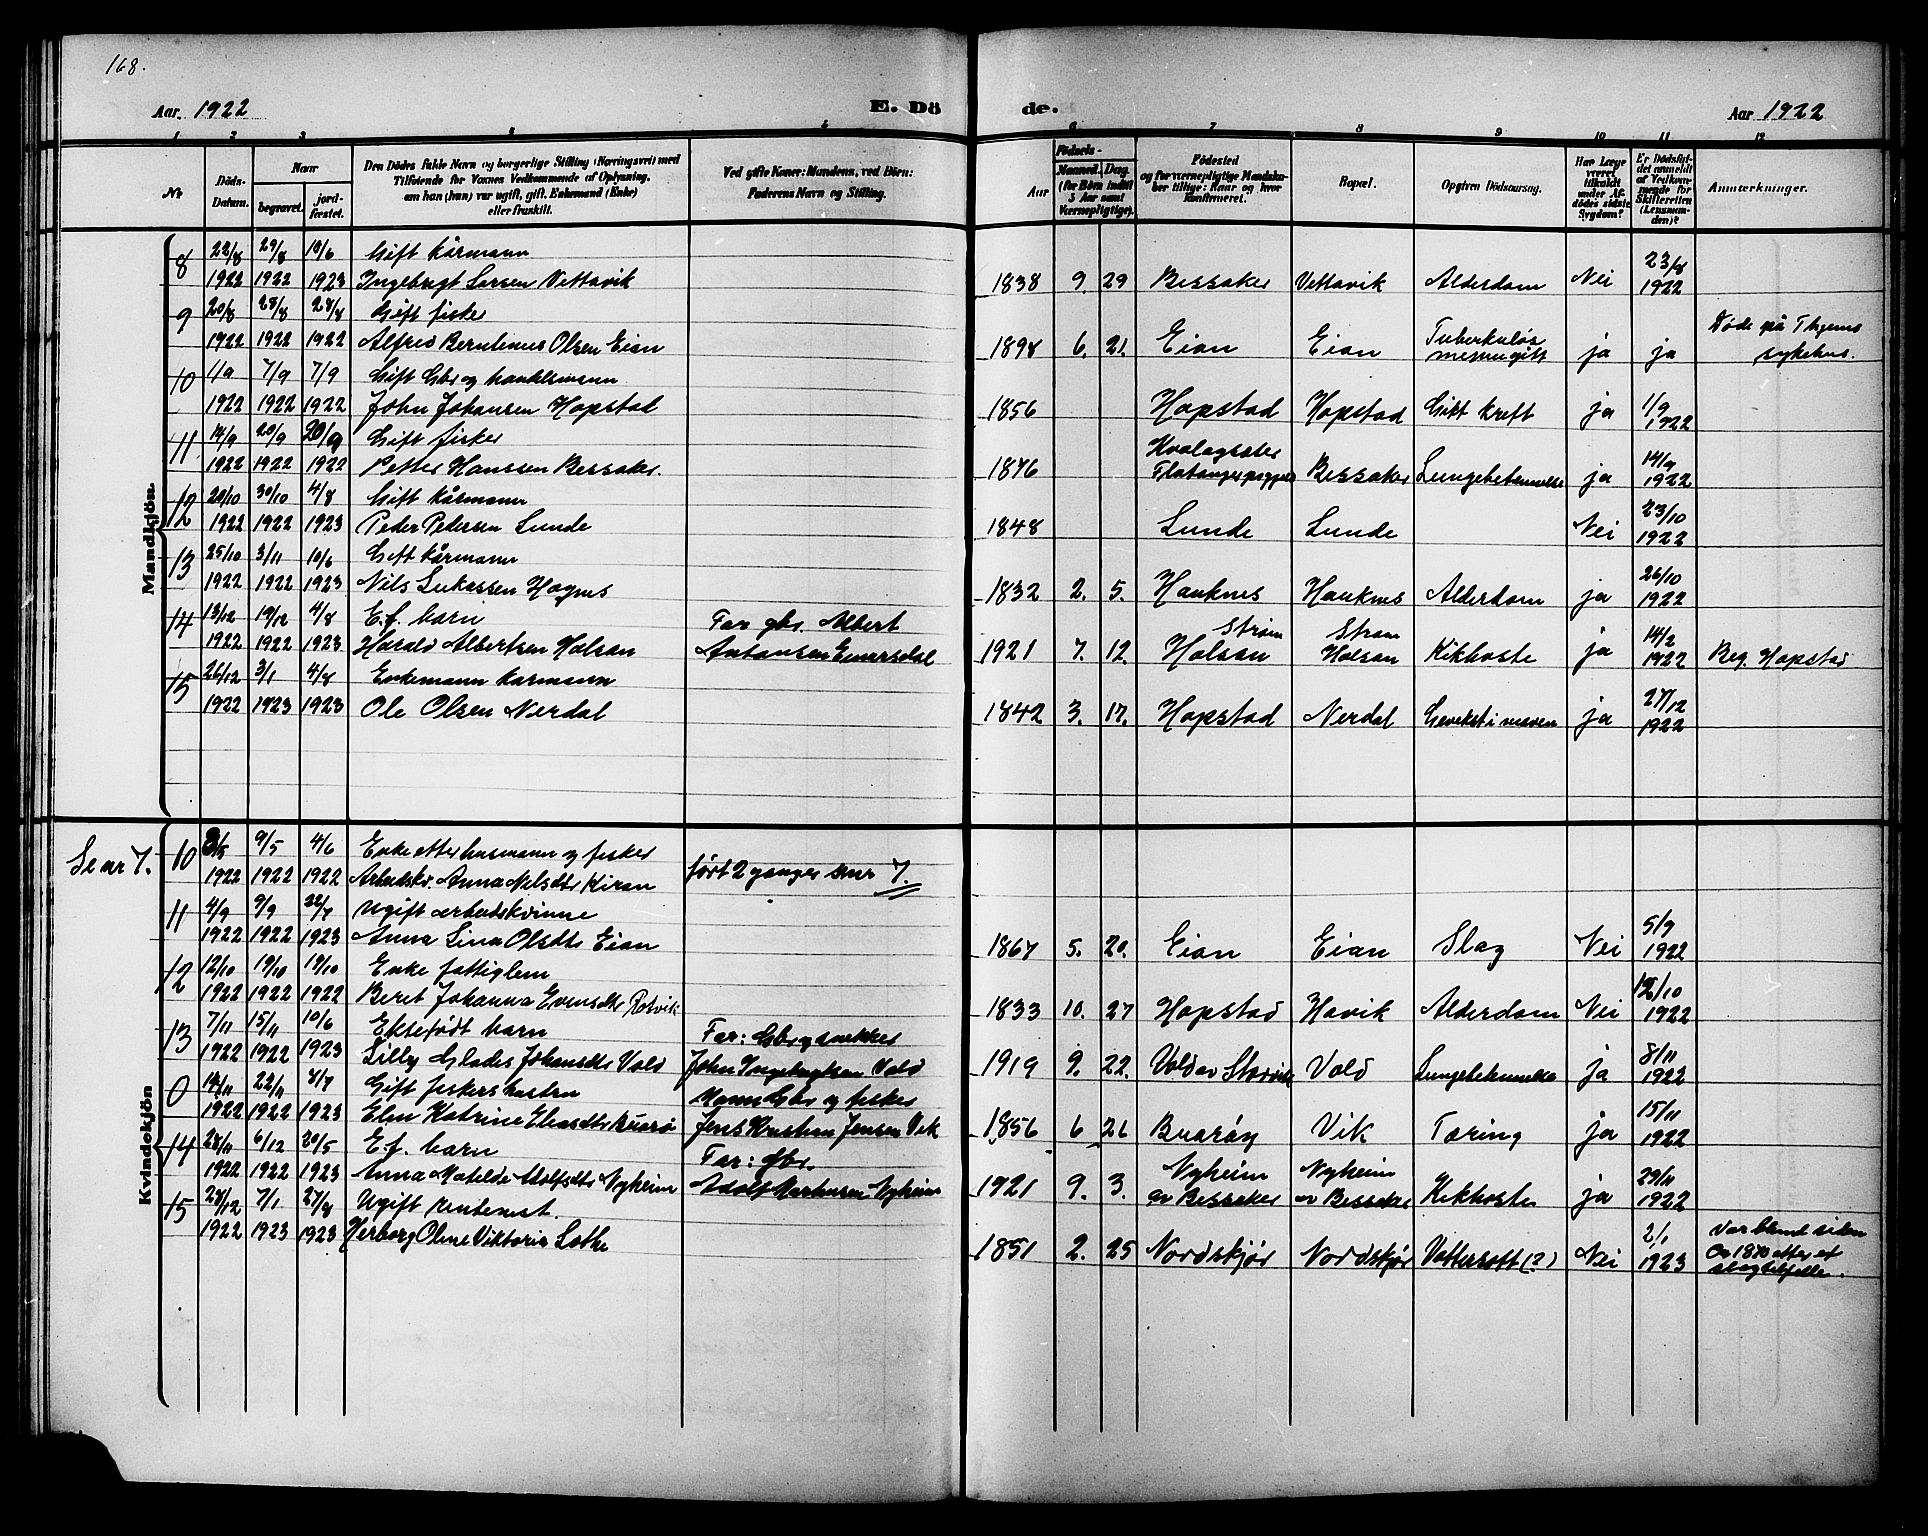 168.
Aar 1922
E. Dö
de.
Aar 1922
1 2 3 4 5 6 7 8 9 10 11 12
No
Döds-Datum.
Naar
begravet.
jord-fæstet.
Den Dödes fulde Navn og borgerlige Stilling (Næringsvei) med
Tilföiende for Voxnes Vedkommende af Oplysning,
om han (hun) var ugift, gift, Enkemand (Enke)
eller fraskilt.
Ved gifte Koner: Mandens, ved Börn:
Faderens Navn og Stilling.
Födsels-
Aar
Maaned. Dag.
(for Börn indtil
5 Aar samt
Værnepligtige).
Födested
og for værnepligtige Mandska-
ber tillige: Naar og hvor
konfirmeret.
Bopæl.
Opgiven Dödsaarsag.
Har Læge
været
tilkaldt
under Af-
dödes sidste
Sygdom?
Er Dödsfal-
det anmeldt
af Vedkom-
mende for
Skifteretten
(Lensman-
den)?
Anmærkninger.
Mandkjön.
8 22/8 29/8 10/6 Gift kårmann
1922 1922 1923 Ingebrigt Larsen Vettavik 1838 9. 29 Bessaker Vettavik Alderdom Nei 23/8 1922
9 20/8 28/8 28/8 Gift fisker
1922 1922 1922 Alfred Berntinus Olsen Eian 1898 6. 21. Eian Eian Tuberkuløs ja ja Døde på Thjems sykehus.
10 1/9 7/9 7/9 Gift Gbr og handelsmann
1922 1922 1922 John Johansen Hopstad 1856 Hopstad Hopstad Gift kreft ja 1/9 1922
11 14/9 20/9 20/9 Gift fisker
1922 1922 1922 Petter Hanssen Bessaker. 1876 Bessaker Lungebetennelse ja 14/9 1922
12 20/10 30/10 4/8 Gift kårmann
1922 1922 1923 Peder Pedersen Lunde 1848 Lunde Lunde Nei 23/10 1922
13 25/10 3/11 10/6 Gift kårmann
1922 1922 1923 Nils Lukassen 1832 2. 5. Hauknes Hauknes Alderdom ja 26/10 1922
14 13/12 19/12 4/8 E.f. barn Far gbr. Albert
1922 1922 1923 Harald Albertsen Holsan Antonsen 1921 7. 12. Strøm Holsan Strøm Holsan Kikhoste ja 14/2 1922 Beg. Hopstad
15 26/12 3/1 4/8 Enkemann kårmann
1922 1923 1923 Ole Olsen Nerdal 1842 3. 17. Hopstad Nerdal i maven ja 27/12 1922
Kvindekjön
Se nr 7. 10 3/5 9/5 4/6 Enke etter husmann og fisker
1922 1922 1922 Arbeidskv. Anna Nilsdtr Kiran ført 2 ganger 7.
11 4/9 9/9 22/7 Ugift arbeidskvinne
1922 1922 1923 Anna Lina Olsdtr Eian 1867 5. 20. Eian Eian Slag Nei 5/9 1922
12 12/10 19/10 19/10 Enke fattiglem
1922 1922 1922 Beret Johanna Evensdtr 1833 10. 27 Hopstad Havik Alderdom Nei 12/10 1922
13 7/11 15/11 10/6 Ektefødt barn Far: Gbr og snekker
1922 1922 1923 Lilly Glades Johansdtr Vold John Ingebrigtsen Vold 1919 9. 22. Vold av Storvik Vold Lungebetennelse ja 8/11 1922
0 14/11 22/11 8/7 Gift fiskershustru Mann Gbr og fisker
1922 1922 1923 Elen Katrine Eliasdtr Buarø Jens Kristian Jensen Vik 1856 6 26 Buarøy Vik Tæring ja 15/11 1922
14 28/11 6/12 20/5 E.f. barn Far: gbr.
1922 1922 1923 Anna Matilde Adolfsdtr Nyheim Adolf Markusen Nyheim 1921 9. 3. Nyheim av Bessaker Nyheim av Bessaker Kikhoste ja 29/11 1922
15 28/12 7/1 27/8 Ugift rentenist.
1922 1923 1923 Herborg Oline Viktoria Lothe 1851 2. 25 Nordskjør Nordskjør Vattersott (?) Nei 2/1 1923 Var blind siden Ca 1870 etter et slagtilfelle.